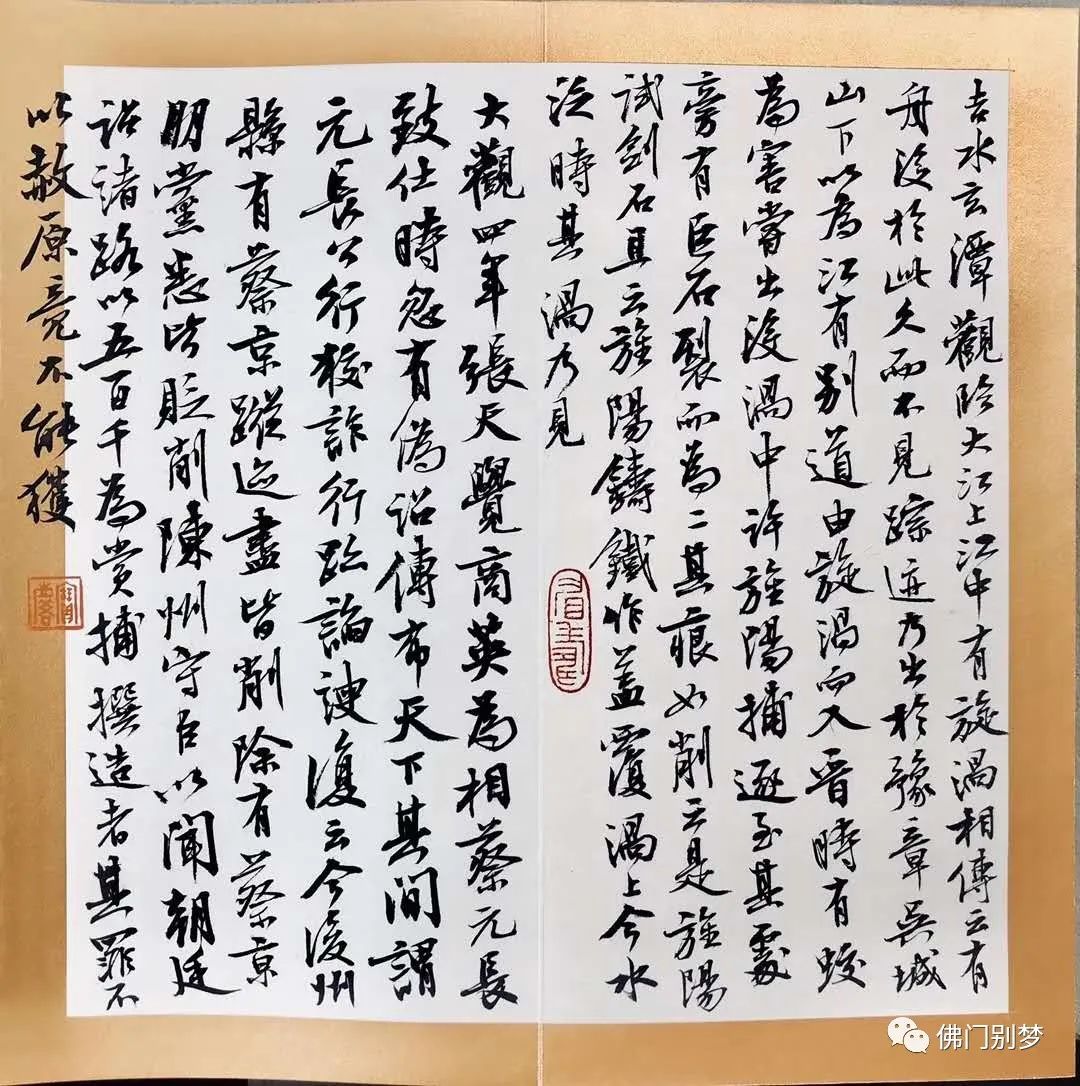 吉水玄潭觀臨大江上江中有旋渦相傳云有
舟沒於此久而不見踪迹乃出於豫章吳城
山下以為江有別道由旋渦而入晉時有蛟
為害嘗出沒渦中許旌陽捕逐至其處
旁有巨石裂而為二其痕如削云是旌陽
試劍石且云旌陽鑄鐵作蓋覆渦上今水
泛時其渦乃見
大觀四年張天覺商英為相蔡元長
致仕時忽有偽詔傳布天下其間謂
元長公行狡詐行跡諂諛復云今後州
縣有蔡京蹤迹盡皆削除有蔡京
朋黨悉皆貶削陳州守臣以聞朝廷
詔諸路以五百千為賞捕撰造者其罪不
以赦原竟不能獲
佛门别梦